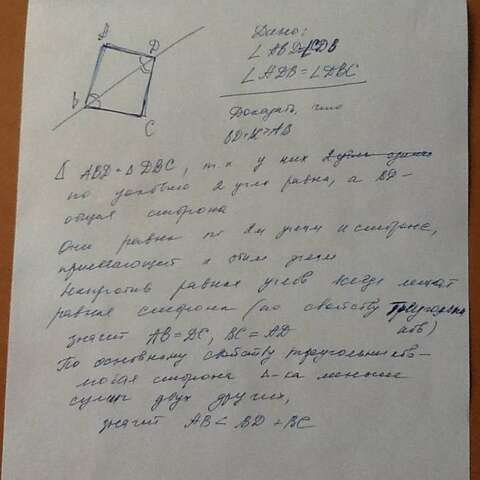 Дано:
∠ ABD=∠CDB
∠ ADB=∠DBC
Доказать, что
BD+BC>AB
A
D
B
C
Δ ABD = Δ DBC, т.к у них 2 угла
по условию 2 угла равны, а BD-
общая сторона
Они равны по 2м углам и стороне,
прилежащей к этим углам
Напротив равных углов всегда лежат
равные стороны (по свойству треугольника
значит AB=DC, BC=AD
По основному свойству треугольников-
любая сторона Δ-ка меньше
суммы двух других,
значит AB < BD + BC